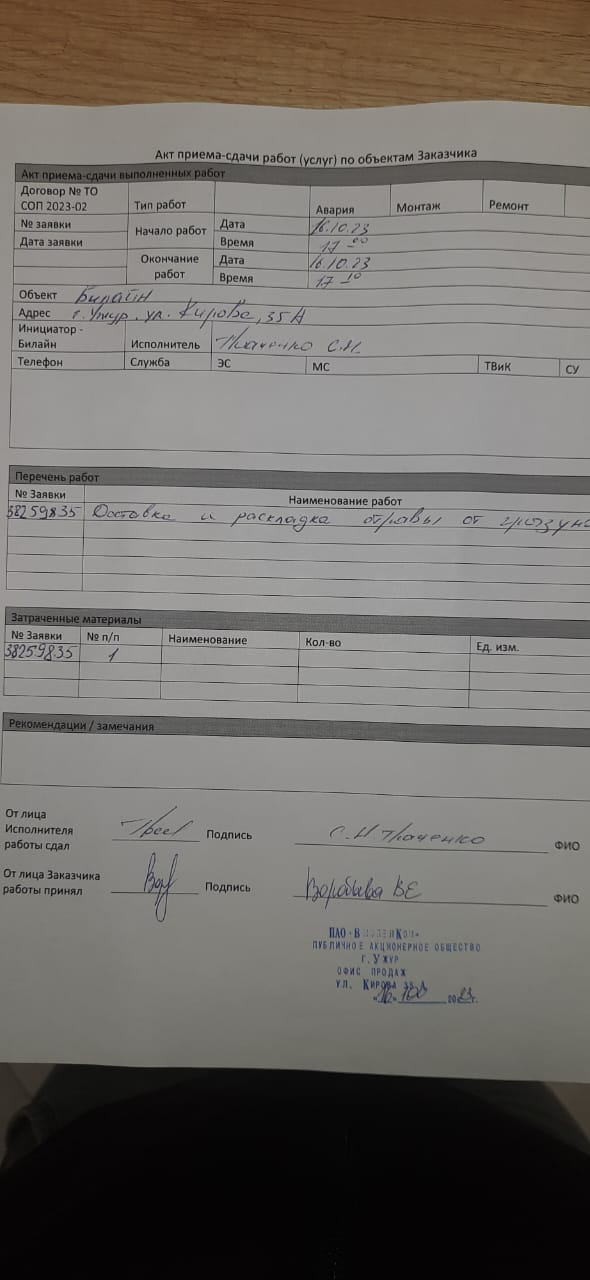 Акт приема-сдачи работ (услуг) по объектам Заказчика
Акт приема-сдачи выполненных работ
Договор № ТО СОП 2023-02 Тип работ Авария Монтаж Ремонт
№ заявки Начало работ Дата 16.10.23
Дата заявки Время 17 00
Окончание работ Дата 16.10.23
Время 17 10
Объект Билайн
Адрес г. Ужур, ул. Кирова, 35А
Инициатор - Билайн Исполнитель Ткаченко С.Н.
Телефон Служба ЭС МС ТВиК СУ
Перечень работ
№ Заявки Наименование работ
38259835 Доставка и раскладка отравы от грызуно
Затраченные материалы
№ Заявки № п/п Наименование Кол-во Ед. изм.
38259835 1
Рекомендации / замечания
От лица
Исполнителя
работы сдал Подпись С.Н. Ткаченко ФИО
От лица Заказчика
работы принял Подпись Воробьева ВЕ ФИО
ПАО
ПУБЛИЧНОЕ АКЦИОНЕРНОЕ ОБЩЕСТВО
Г. УЖУР
ОФИС ПРОДАЖ
УЛ. КИРОВА
«16» 2023г.